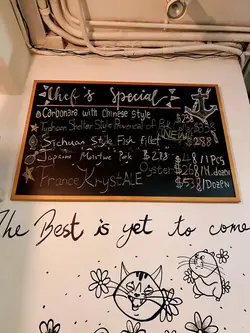 Chef's Special
Carbonara with Chinese style $238
Typhoon Shelter Style Provencal of Pork $238
NEW
Sichuan Style Fish Fillet $288
Japanese Moisture Pork $288 $48/1PCS
Oyster $268/½ dozen
France KrystALE $538/1DOZEN
The Best is yet to come